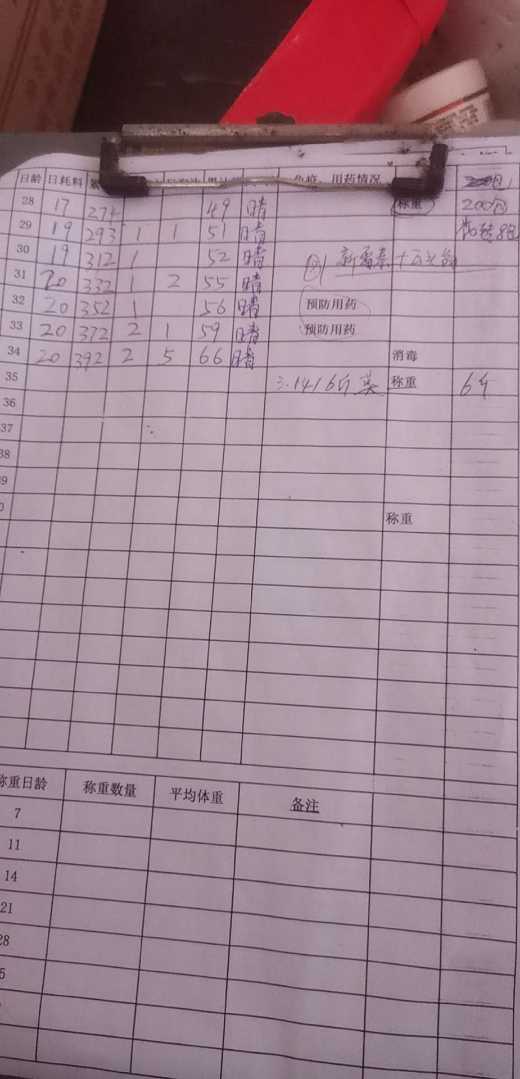 日龄 日耗料 免疫、用药情况
28 17 274 49 晴 称重 200包
29 19 293 1 1 51 晴
30 19 312 1 52 晴 新霉素
31 20 332 1 2 55 晴
32 20 352 1 56 晴 预防用药
33 20 372 2 1 59 晴 预防用药
34 20 392 2 5 66 晴 消毒
35 3.1416斤 称重 6斤
36
37
38
39
称重
称重日龄 称重数量 平均体重 备注
7
11
14
21
28